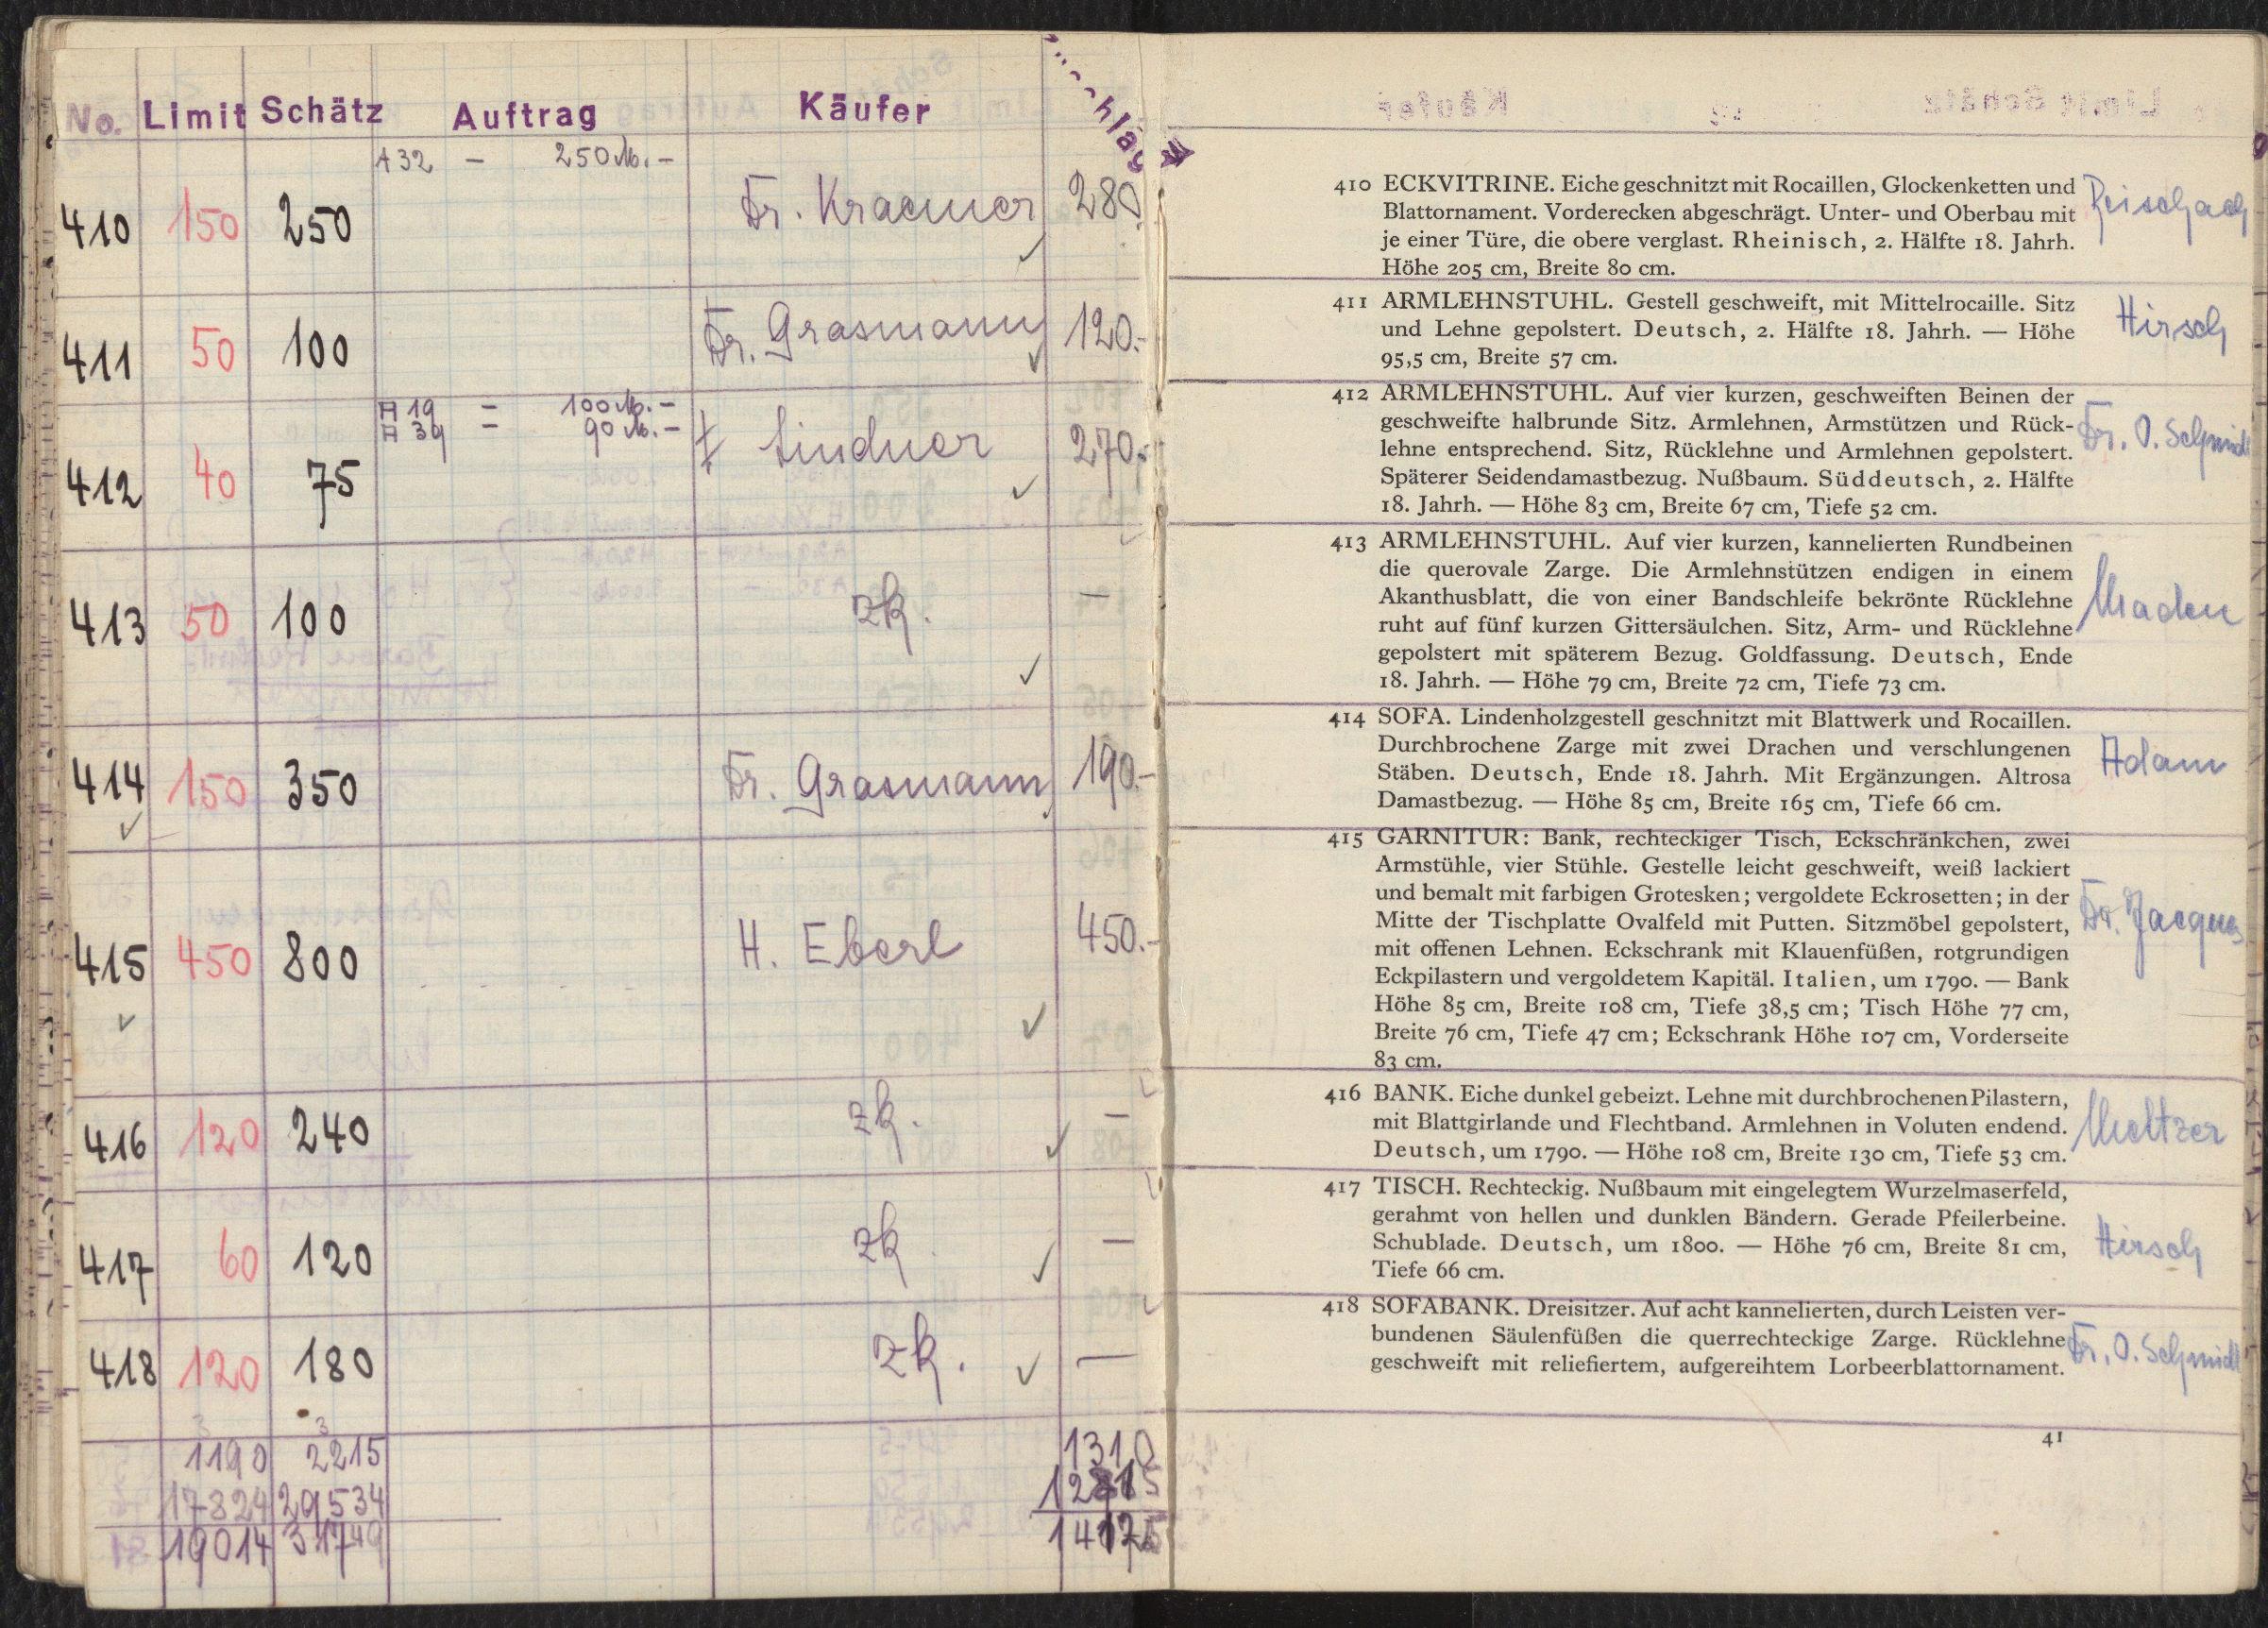 No. Limit Schätz Auftrag Käufer
A 32 – 250 M. –
410 150 250 Dr. Kraemer 280
411 50 100 Dr. Grasmann 120.-
A 19 – 100 M. –
A 39 – 90 M. –
412 40 75 Lindner 270.-
413 50 100 zk. –
414 150 350 Dr. Grasmann 190.-
415 450 800 H. Eberl 450.-
416 120 240 zk. –
417 60 120 zk. –
418 120 180 zk. –
1190 2215 1310
17824 29534
19014 31749
410 ECKVITRINE. Eiche geschnitzt mit Rocaillen, Glockenketten und
Blattornament. Vorderecken abgeschrägt. Unter- und Oberbau mit
je einer Türe, die obere verglast. Rheinisch, 2. Hälfte 18. Jahrh.
Höhe 205 cm, Breite 80 cm.
Reischach
411 ARMLEHNSTUHL. Gestell geschweift, mit Mittelrocaille. Sitz
und Lehne gepolstert. Deutsch, 2. Hälfte 18. Jahrh. — Höhe
95,5 cm, Breite 57 cm.
Hirsch
412 ARMLEHNSTUHL. Auf vier kurzen, geschweiften Beinen der
geschweifte halbrunde Sitz. Armlehnen, Armstützen und Rück-
lehne entsprechend. Sitz, Rücklehne und Armlehnen gepolstert.
Späterer Seidendamastbezug. Nußbaum. Süddeutsch, 2. Hälfte
18. Jahrh. — Höhe 83 cm, Breite 67 cm, Tiefe 52 cm.
Dr. O. Schmidt
413 ARMLEHNSTUHL. Auf vier kurzen, kannelierten Rundbeinen
die querovale Zarge. Die Armlehnstützen endigen in einem
Akanthusblatt, die von einer Bandschleife bekrönte Rücklehne
ruht auf fünf kurzen Gittersäulchen. Sitz, Arm- und Rücklehne
gepolstert mit späterem Bezug. Goldfassung. Deutsch, Ende
18. Jahrh. — Höhe 79 cm, Breite 72 cm, Tiefe 73 cm.
Maden
414 SOFA. Lindenholzgestell geschnitzt mit Blattwerk und Rocaillen.
Durchbrochene Zarge mit zwei Drachen und verschlungenen
Stäben. Deutsch, Ende 18. Jahrh. Mit Ergänzungen. Altrosa
Damastbezug. — Höhe 85 cm, Breite 165 cm, Tiefe 66 cm.
Adam
415 GARNITUR: Bank, rechteckiger Tisch, Eckschränkchen, zwei
Armstühle, vier Stühle. Gestelle leicht geschweift, weiß lackiert
und bemalt mit farbigen Grotesken; vergoldete Eckrosetten; in der
Mitte der Tischplatte Ovalfeld mit Putten. Sitzmöbel gepolstert,
mit offenen Lehnen. Eckschrank mit Klauenfüßen, rotgrundigen
Eckpilastern und vergoldetem Kapitäl. Italien, um 1790. — Bank
Höhe 85 cm, Breite 108 cm, Tiefe 38,5 cm; Tisch Höhe 77 cm,
Breite 76 cm, Tiefe 47 cm; Eckschrank Höhe 107 cm, Vorderseite
83 cm.
Dr. Jacques
416 BANK. Eiche dunkel gebeizt. Lehne mit durchbrochenen Pilastern,
mit Blattgirlande und Flechtband. Armlehnen in Voluten endend.
Deutsch, um 1790. — Höhe 108 cm, Breite 130 cm, Tiefe 53 cm.
Meltzer
417 TISCH. Rechteckig. Nußbaum mit eingelegtem Wurzelmaserfeld,
gerahmt von hellen und dunklen Bändern. Gerade Pfeilerbeine.
Schublade. Deutsch, um 1800. — Höhe 76 cm, Breite 81 cm,
Tiefe 66 cm.
Hirsch
418 SOFABANK. Dreisitzer. Auf acht kannelierten, durch Leisten ver-
bundenen Säulenfüßen die querrechteckige Zarge. Rücklehne
geschweift mit reliefiertem, aufgereihtem Lorbeerblattornament.
Dr. O. Schmidt
41